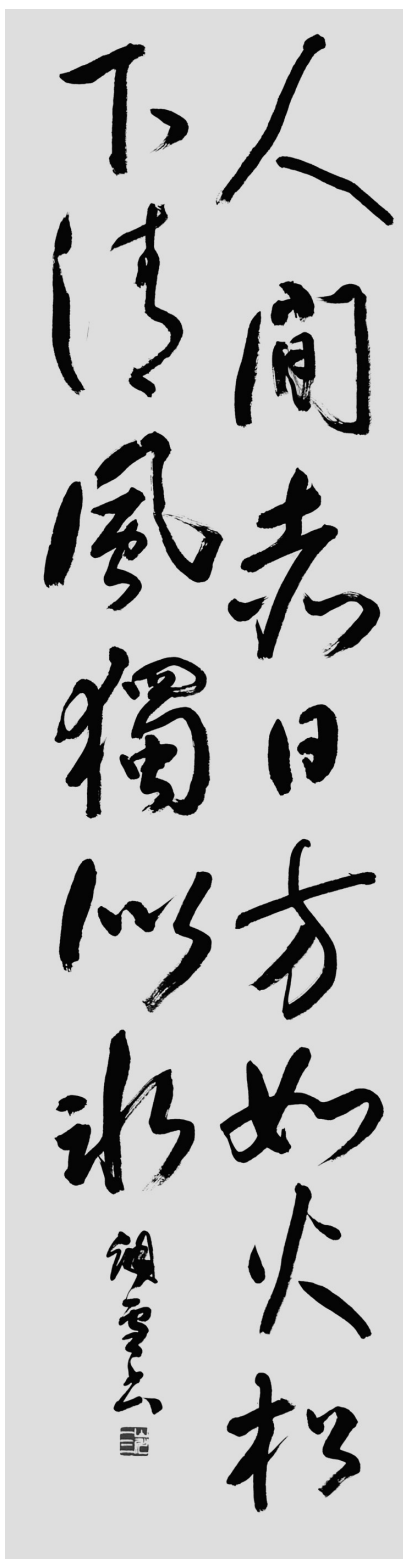 人間赤日方如火松
下清風獨似冰